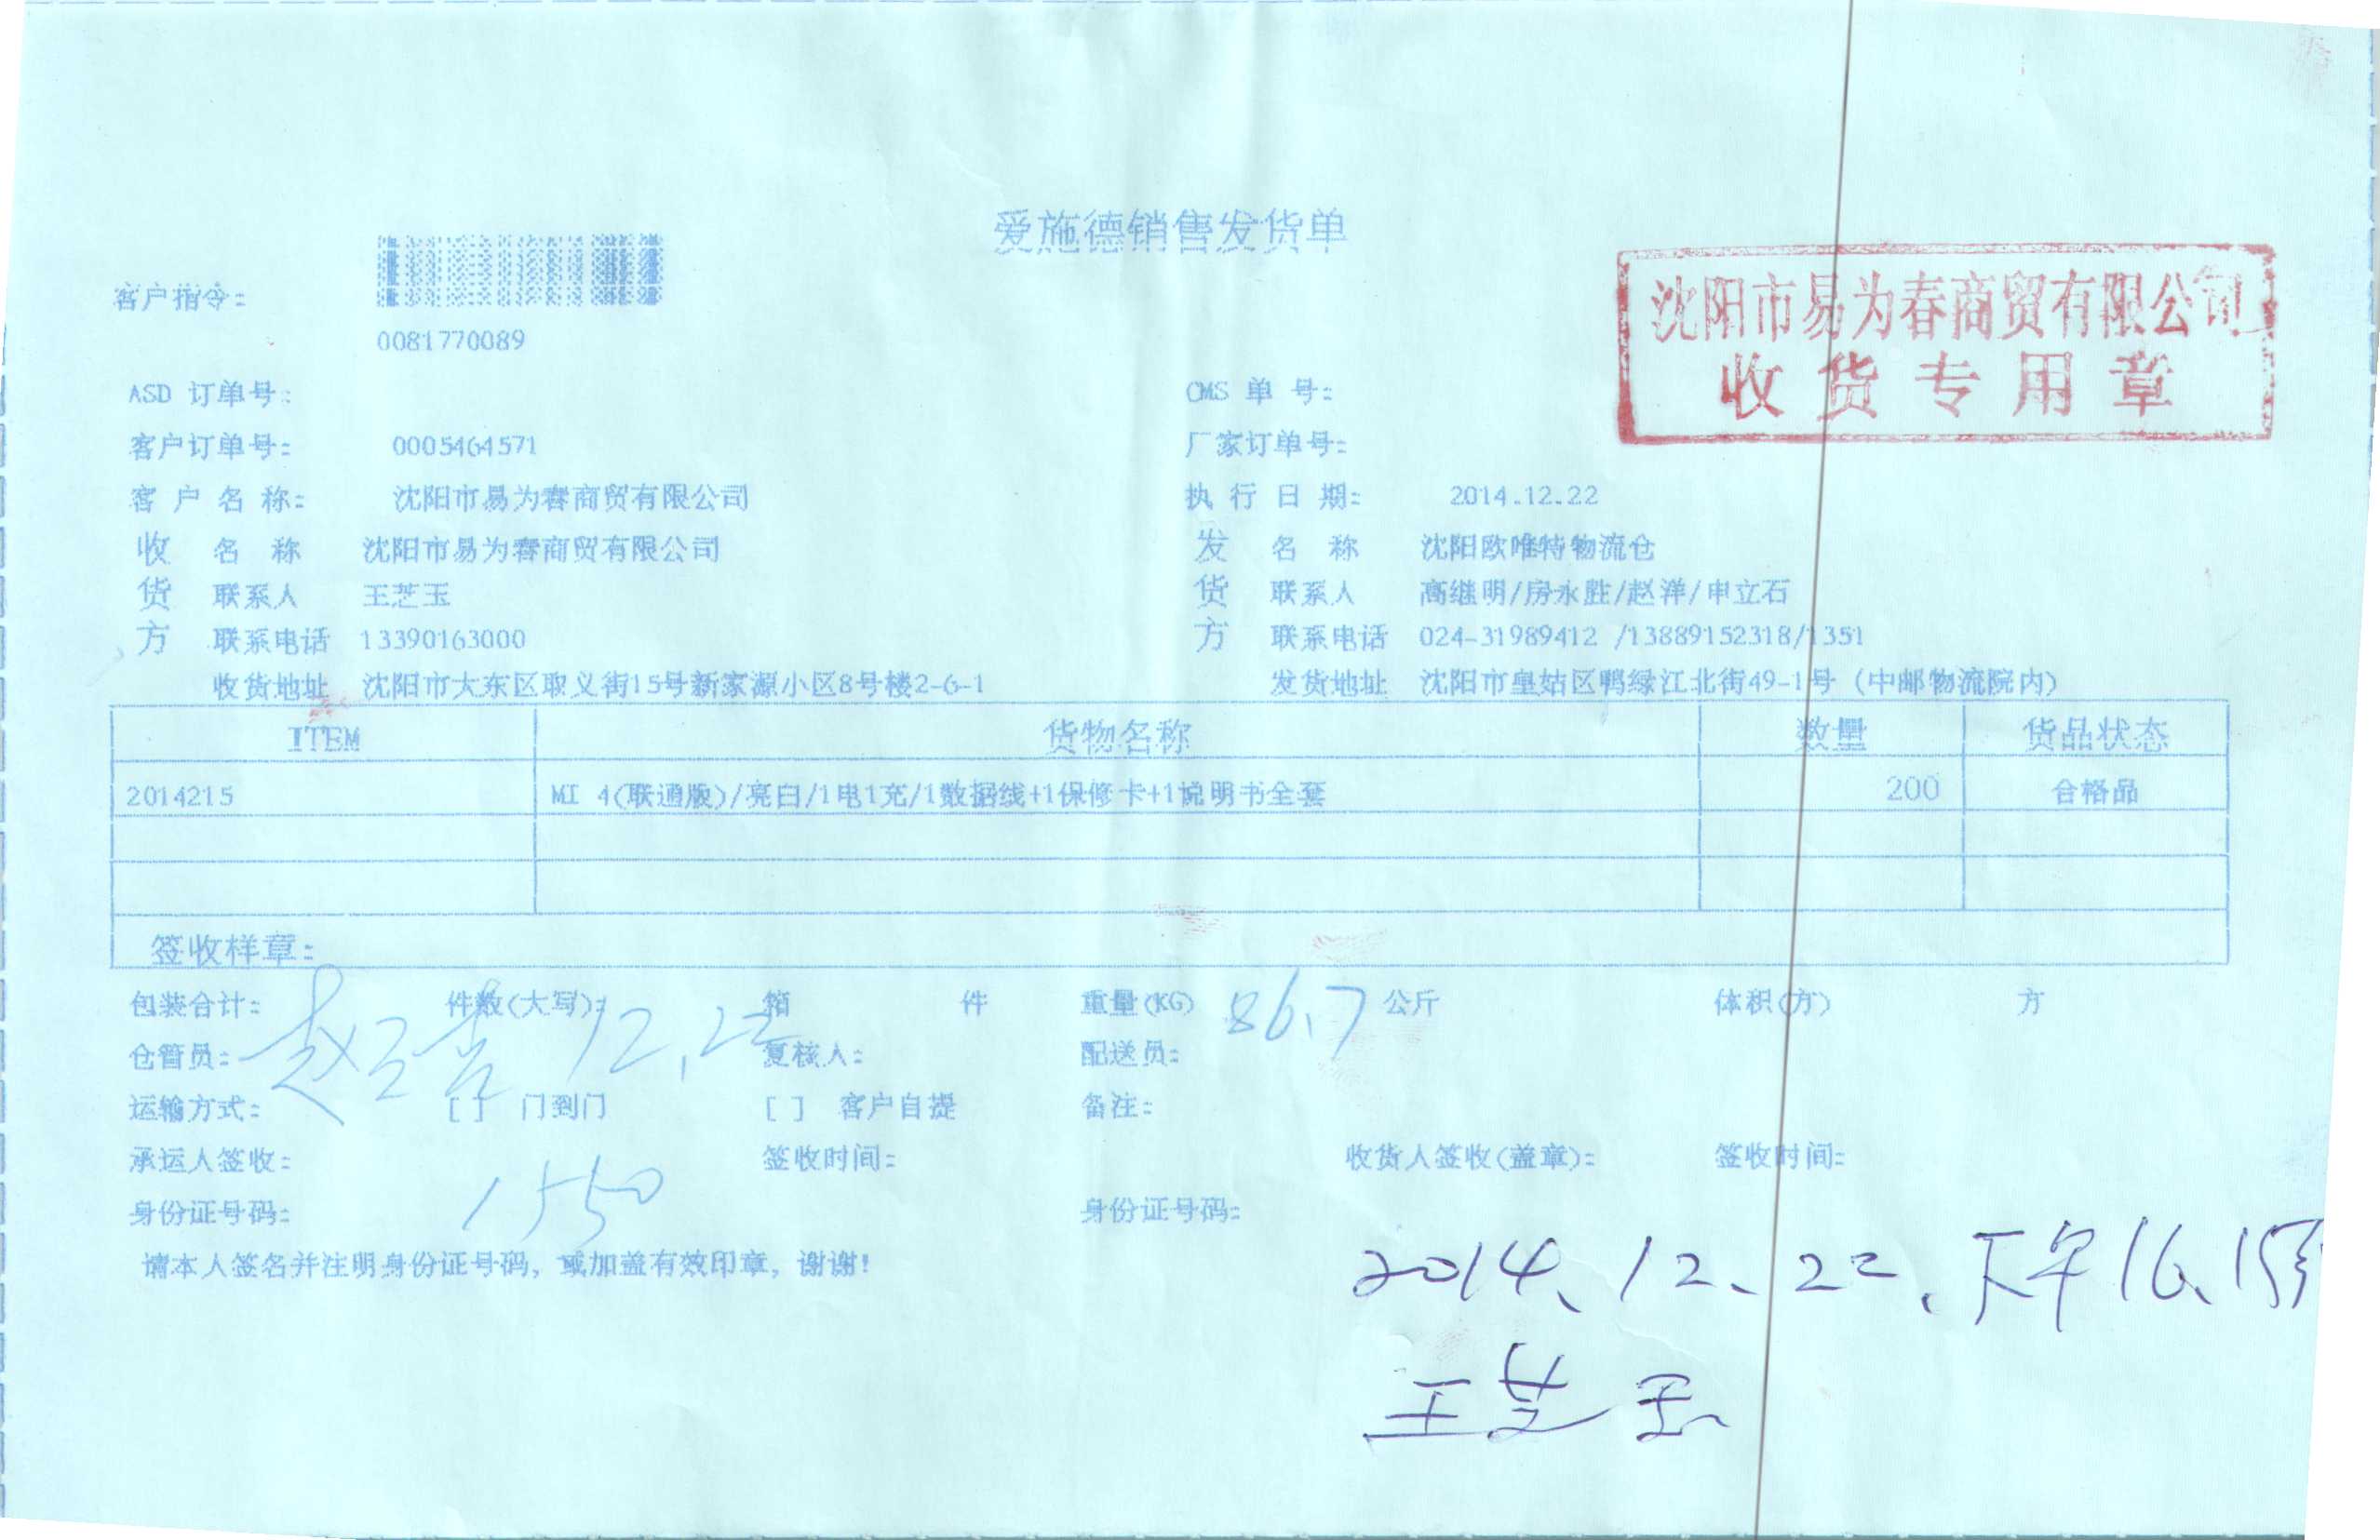 爱施德销售发货单
沈阳市易为春商贸有限公司
收货专用章
客户指令:
0081770089
ASD 订单号: CMS 单 号:
客户订单号: 0005464571 厂家订单号:
客 户 名 称: 沈阳市易为春商贸有限公司 执 行 日 期: 2014.12.22
收 名 称 沈阳市易为春商贸有限公司 发 名 称 沈阳欧唯特物流仓
货 联系人 王芝玉 货 联系人 高继明/房永胜/赵洋/申立石
方 联系电话 13390163000 方 联系电话 024-31989412 /13889152318/1351
收货地址 沈阳市大东区取义街15号新家源小区8号楼2-6-1 发货地址 沈阳市皇姑区鸭绿江北街49-1号 (中邮物流院内)
ITEM 货物名称 数量 货品状态
2014215 MI 4(联通版)/亮白/1电1充/1数据线+1保修卡+1说明书全套 200 合格品
签收样章:
包装合计: 件数(大写): 箱 件 重量(KG) 86.7 公斤 体积(方) 方
仓管员: 12.22 复核人: 配送员:
运输方式: [ ] 门到门 [ ] 客户自提 备注:
承运人签收: 签收时间: 收货人签收(盖章): 签收时间:
身份证号码: 1550 身份证号码:
请本人签名并注明身份证号码, 或加盖有效印章, 谢谢!
2014、12、22、下午16、15
王芝玉